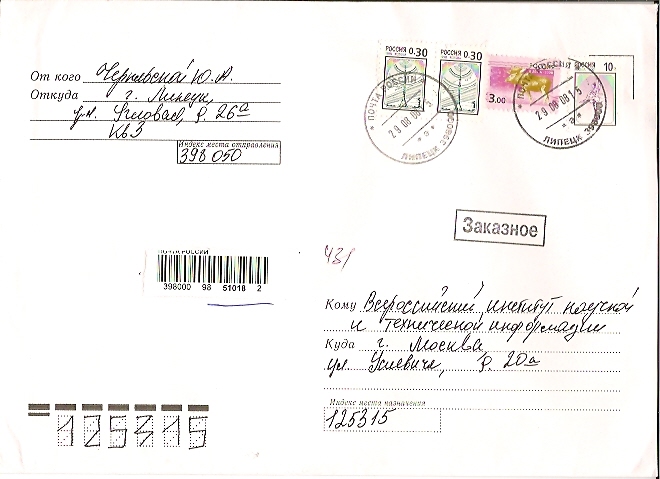 От кого Чернявской Ю.А.
Откуда г. Липецк,
ул. Угловая, д. 26а
кв3
Индекс места отправления
398050
РОССИЯ 0.30
1
РОССИЯ 0.30
1
3.00
РОССИЯ 10
ПОЧТА РОССИИ
29 08 08 15
ЛИПЕЦК 398000
ПОЧТА РОССИИ
29 08 08 15
ЛИПЕЦК 398000
Заказное
ПОЧТА РОССИИ
398000 98 51018 2
431
Кому Всероссийский институт научной
и технической информации
Куда г. Москва
ул. Усиевича, д. 20а
Индекс места назначения
125315
125315